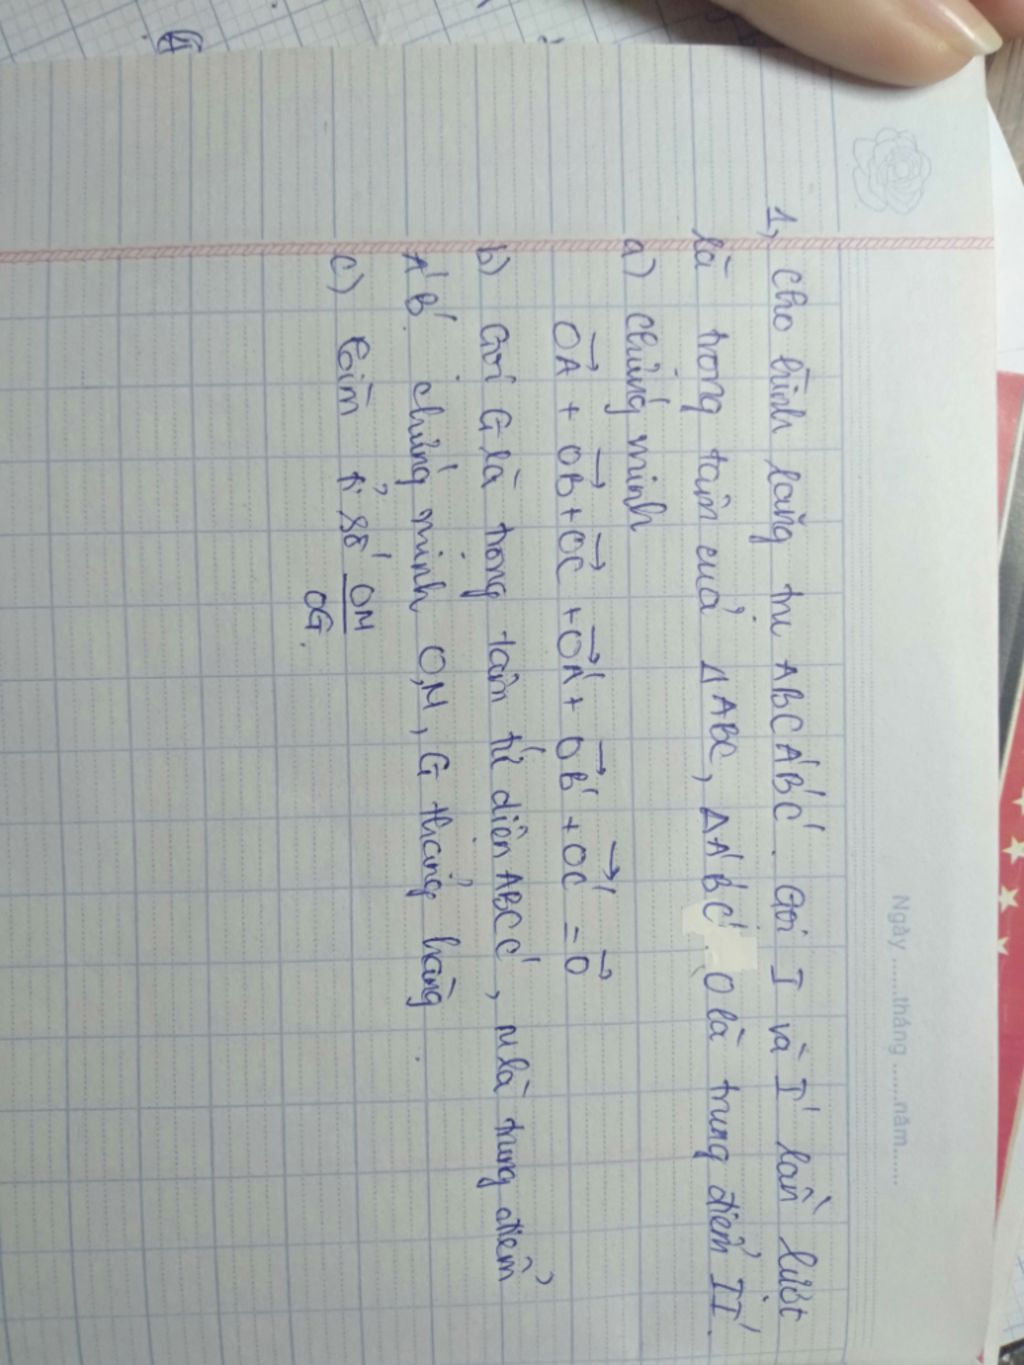 Ngày ......tháng ......năm......
1, Cho hình lăng trụ ABCA'B'C'. Gọi I và I' lần lượt
là trọng tâm của ΔABC, ΔA'B'C'. O là trung điểm II'.
a) Chứng minh
OA + OB + OC + OA' + OB' + OC' = 0
b) Gọi G là trọng tâm tứ diện ABCC', M là trung điểm
A'B'. chứng minh O,M, G thẳng hàng.
c) tìm tỉ số OM/OG.